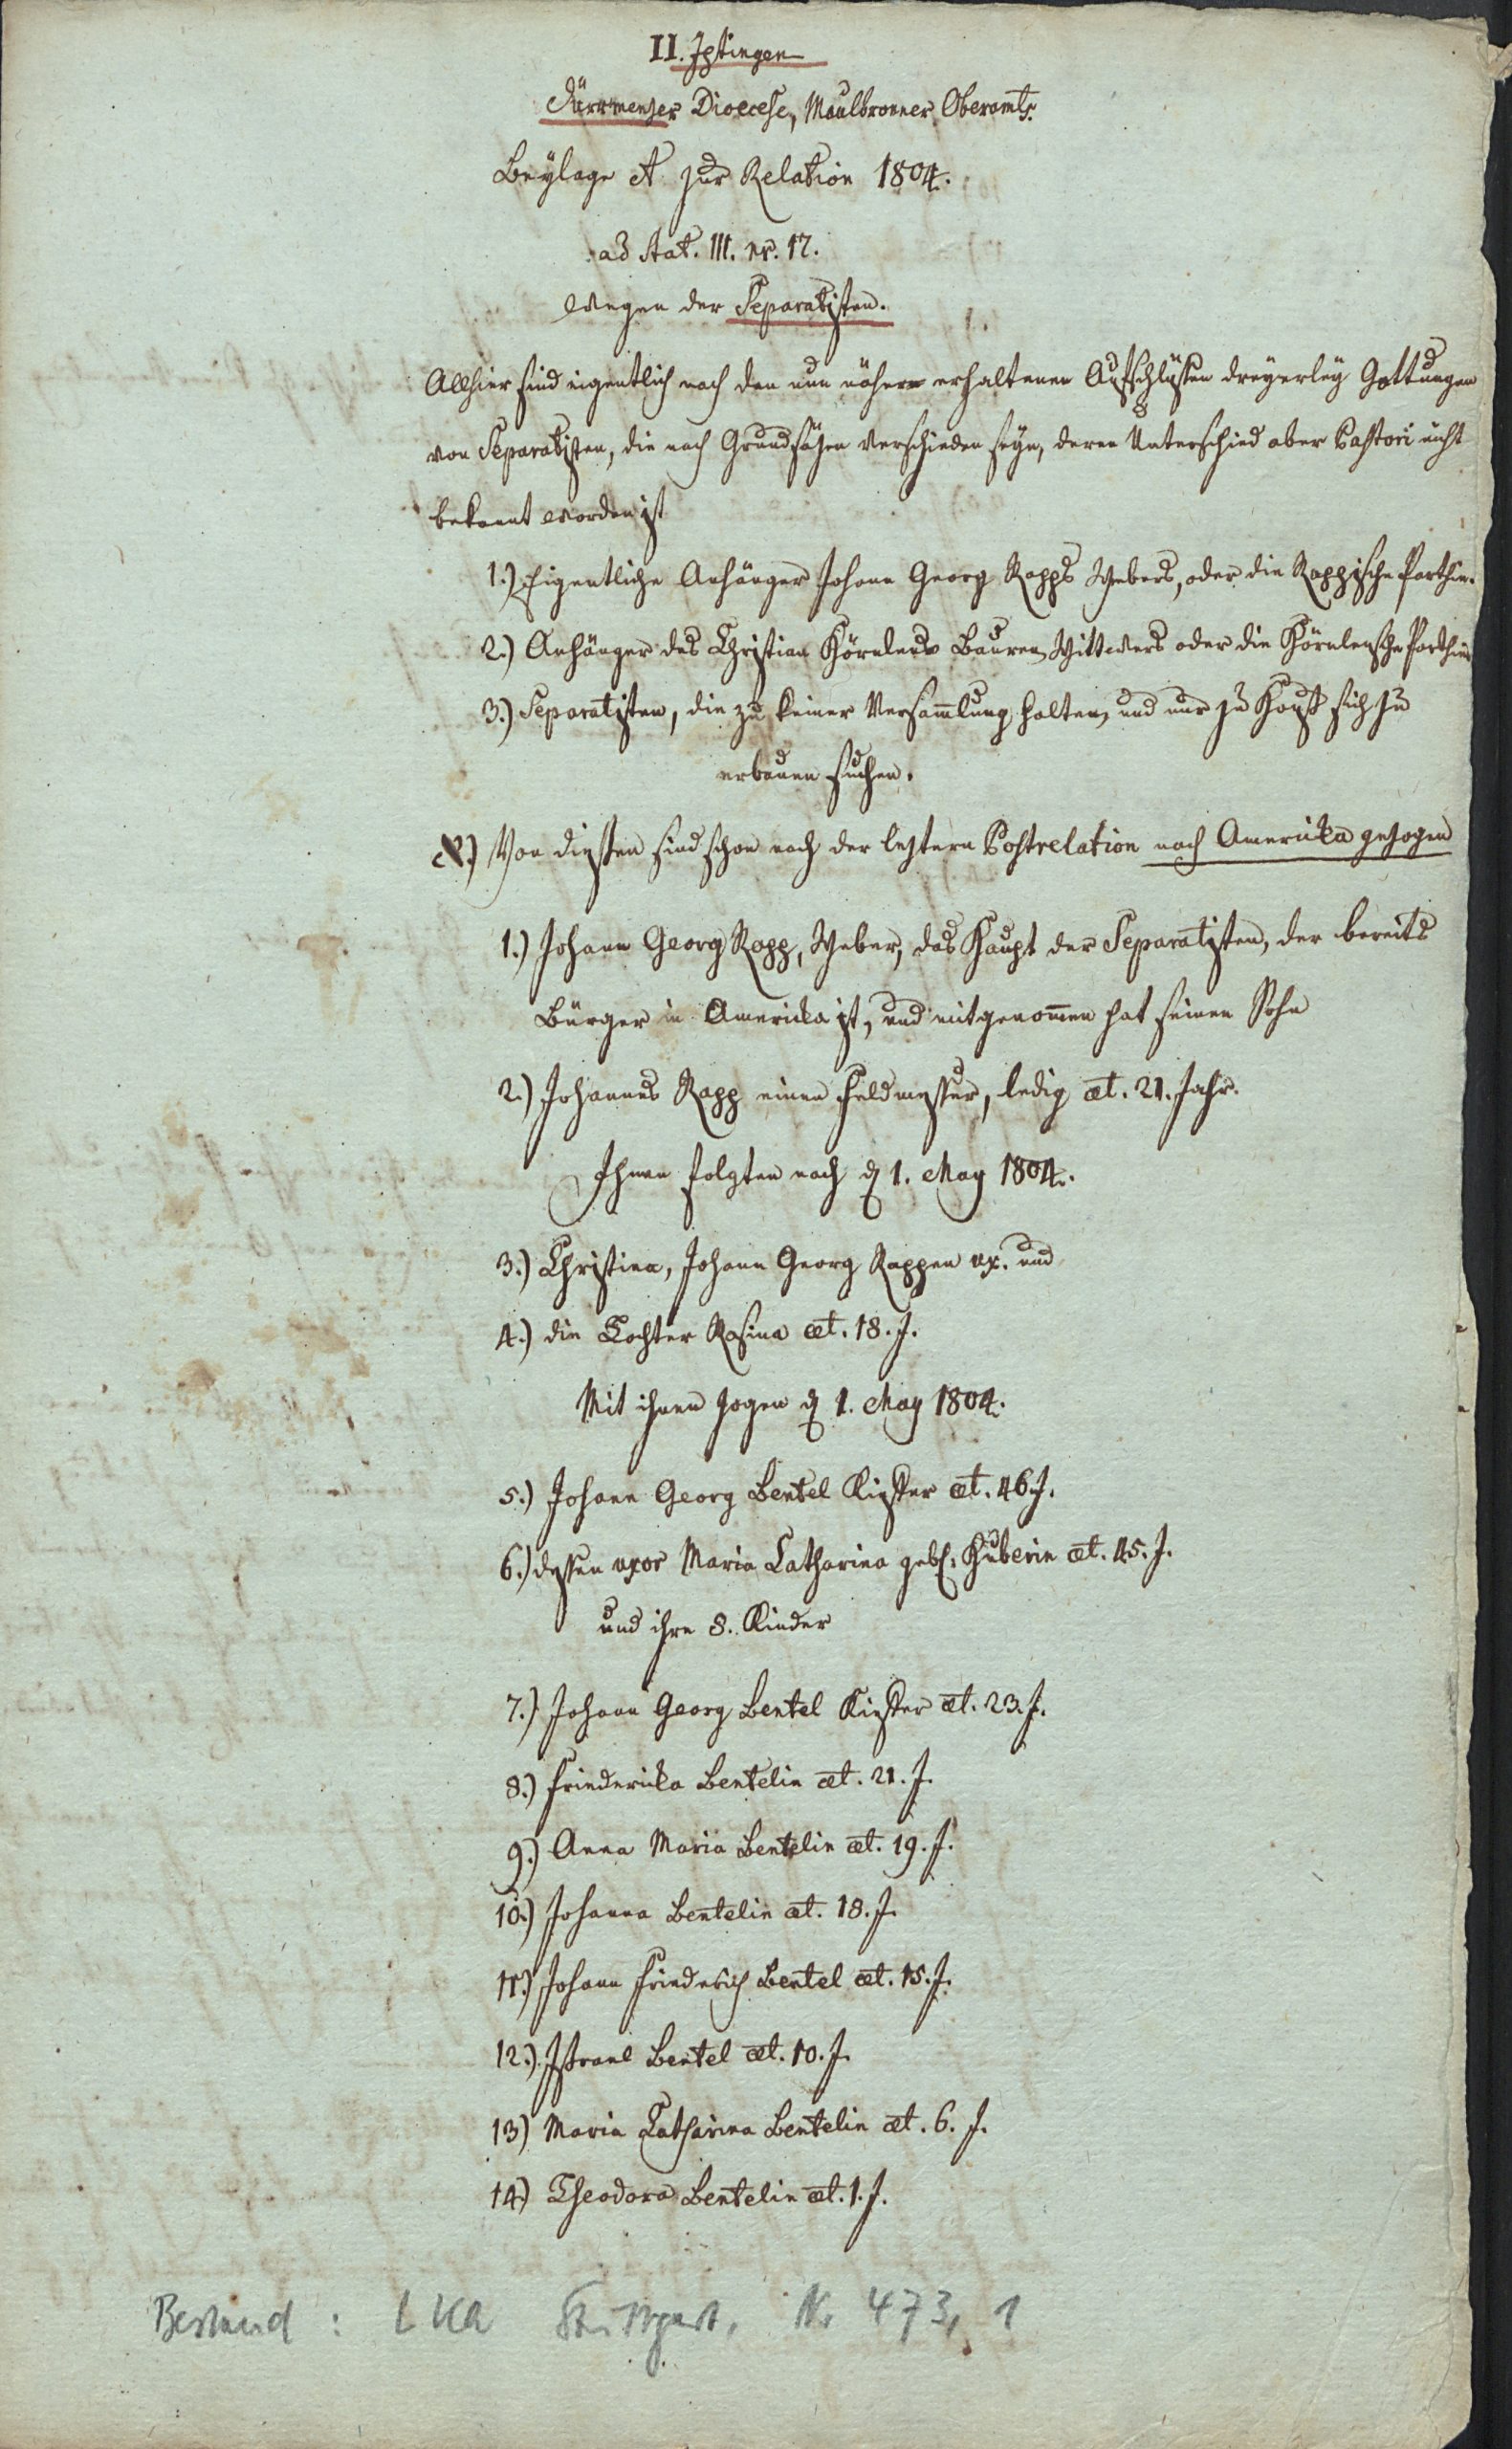 II. Iptingen
Dürrmenzer Dioecese, Maulbronner Oberamts.
Beylage A zur Relation 1804.
ad Stat. III. nr. 17.
wegen der Separatisten.
Allhier sind eigentlich nach den nun näher erhaltenen Aufschlüssen dreyerley Gattungen
von Separatisten, die nach Grundsäzen verschieden seyn, deren Unterschied aber Pastori nicht
bekannt worden ist
1.) Eigentliche Anhänger Johann Georg Rapps Webers, oder die Rappische Parthie.
2.) Anhänger des Christian Hörnlens Bauren, Wittwers oder die Hörnlensche Parthie
3.) Separatisten, die zu keiner Versam̄lung halten, und nur zu Hauß sich zu
erbauen suchen.
Von diesen sind schon nach der leztern Postrelation nach America gezogen
1.) Johann Georg Rapp, Weber, das Haupt der Separatisten, der bereits
Bürger in America ist, und mitgenom̄en hat seinen Sohn
2.) Johannes Rapp einen Feldmesser, ledig æt. 21. Jahr.
Ihnen folgten nach d 1. May 1804.
3.) Christina, Johann Georg Rappen ux. und
4.) die Tochter Rosina æt. 18. J.
Mit ihnen zogen d 1. May 1804.
5.) Johann Georg Bentel Kiefer æt. 46. J.
6.) dessen uxor Maria Catharina geb: Huberin æt. 45. J.
und ihre 8. Kinder
7.) Johann Georg Bentel Kiefer æt. 23. J.
8.) Friedericka Bentelin æt. 21. J.
9.) Anna Maria Bentelin æt. 19. J.
10.) Johanna Bentelin æt. 18. J.
11.) Johann Friederich Bentel æt. 15. J.
12.) Israel Bentel æt. 10. J.
13) Maria Catharina Bentelin æt. 6. J.
14.) Theodora Bentelin æt. 1. J.
Bestand: LKA Stuttgart, Nr 473, 1